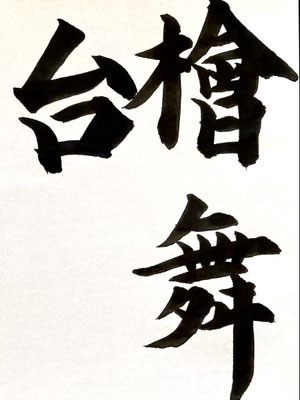 檜舞
台